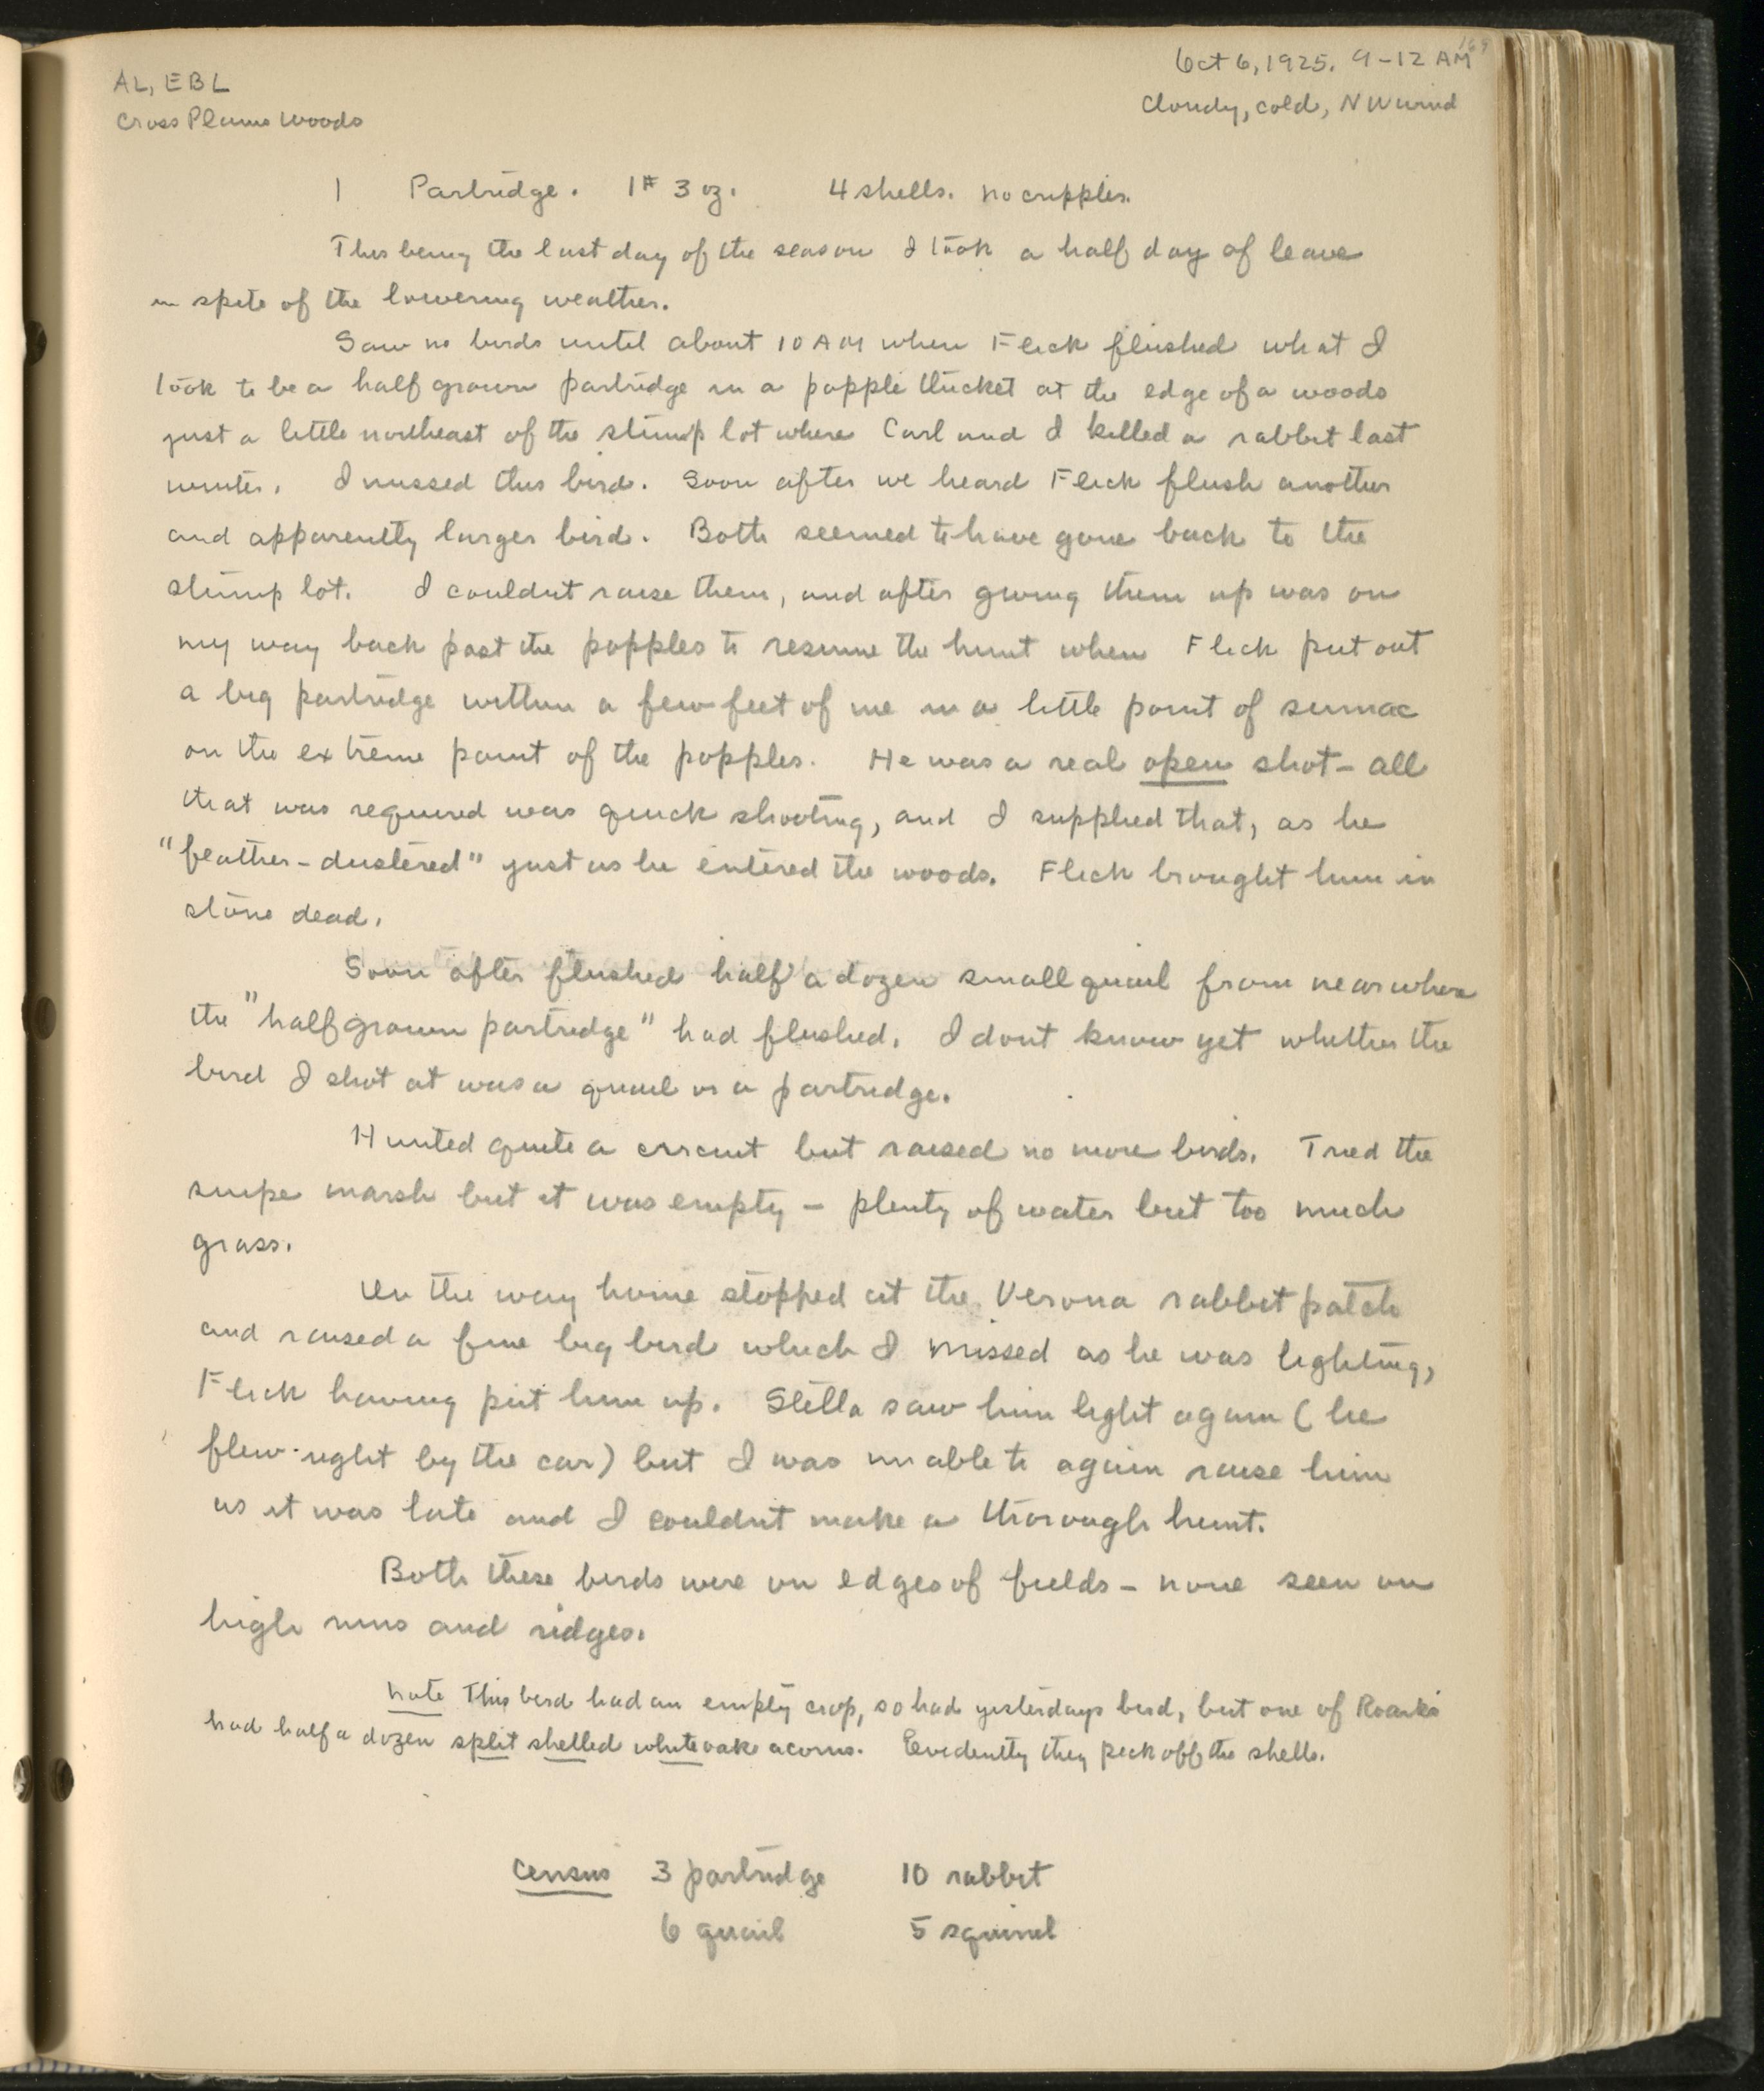 AL, EBL
Cross Plains Woods
Oct 6, 1925. 9-12 AM
Cloudy, cold, NW wind
1 Partridge. 1# 3 oz. 4 shells. no cripples.
This being the last day of the season I took a half day of leave
in spite of the lowering weather.
Saw no birds until about 10 AM when Flick flushed what I
took to be a half grown partridge in a popple thicket at the edge of a woods
just a little northeast of the stump lot where Carl and I killed a rabbit last
winter. I missed this bird. Soon after we heard Flick flush another
and apparently larger bird. Both seemed to have gone back to the
stump lot. I couldnt raise them, and after giving them up was on
my way back past the popples to resume the hunt when Flick put out
a big partridge within a few feet of me in a little point of sumac
on the extreme point of the popples. He was a real open shot - all
that was required was quick shooting, and I supplied that, as he
"feather-dustered" just as he entered the woods. Flick brought him in
stone dead.
Soon after flushed half a dozen small quail from near where
the "half grown partridge" had flushed. I dont know yet whether the
bird I shot at was a quail or a partridge.
Hunted quite a circuit but raised no more birds. Tried the
snipe marsh but it was empty - plenty of water but too much
grass.
On the way home stopped at the Verona rabbit patch
and raised a fine big bird which I missed as he was lighting,
Flick having put him up. Stella saw him light again (he
flew right by the car) but I was unable to again raise him
as it was late and I couldnt make a thorough hunt.
Both these birds were on edges of fields - none seen on
high runs and ridges.
Note This bird had an empty crop, so had yesterdays bird, but one of Roarks
had half a dozen split shelled white oak acorns. Evidently they peck off the shells.
Census 3 partridge 10 rabbit
6 quail 5 squirrel